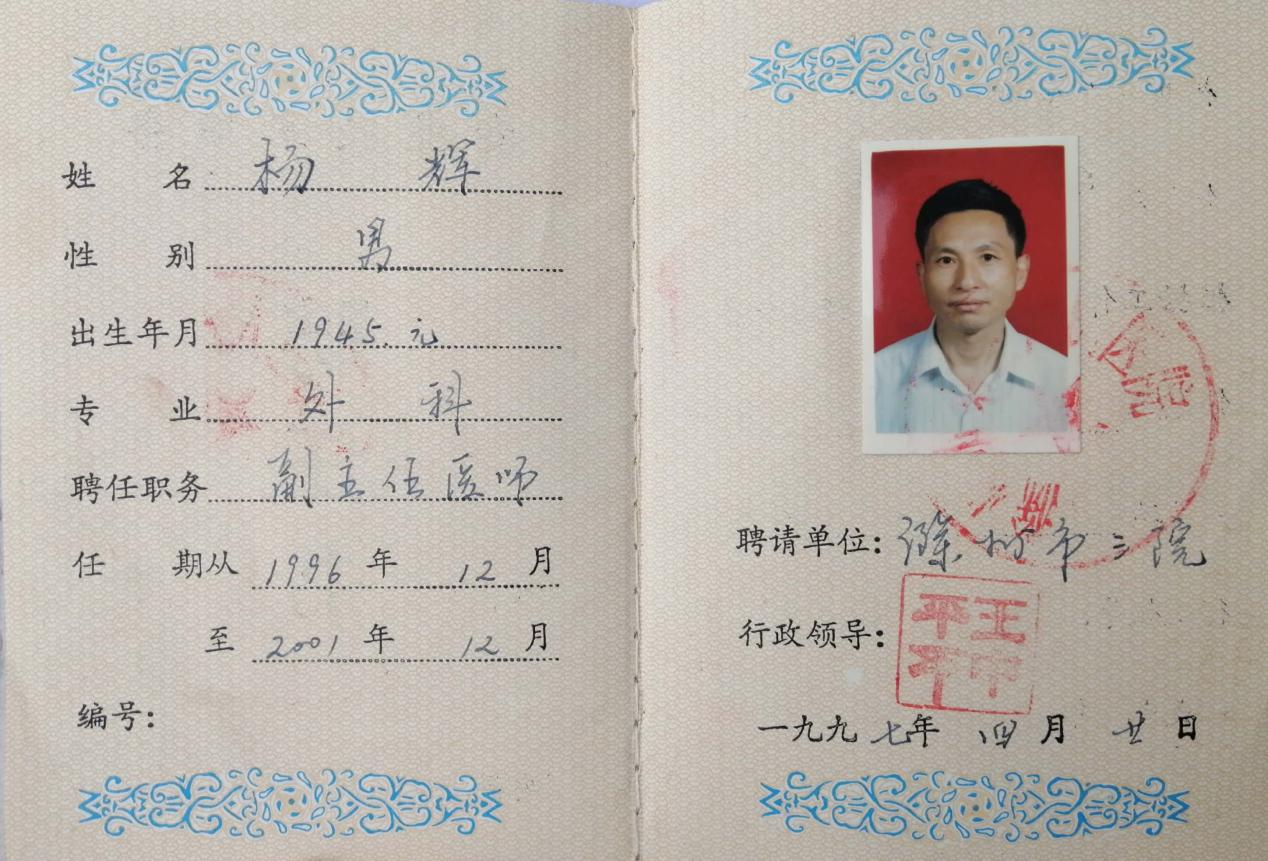 姓 名 杨 辉
性 别 男
出生年月 1945.元
专 业 外 科
聘任职务 副主任医师
任 期从 1996 年 12 月
至 2001 年 12 月
编号:
聘请单位: 市三院
行政领导:
王 平
一九九七年 四 月 廿 日